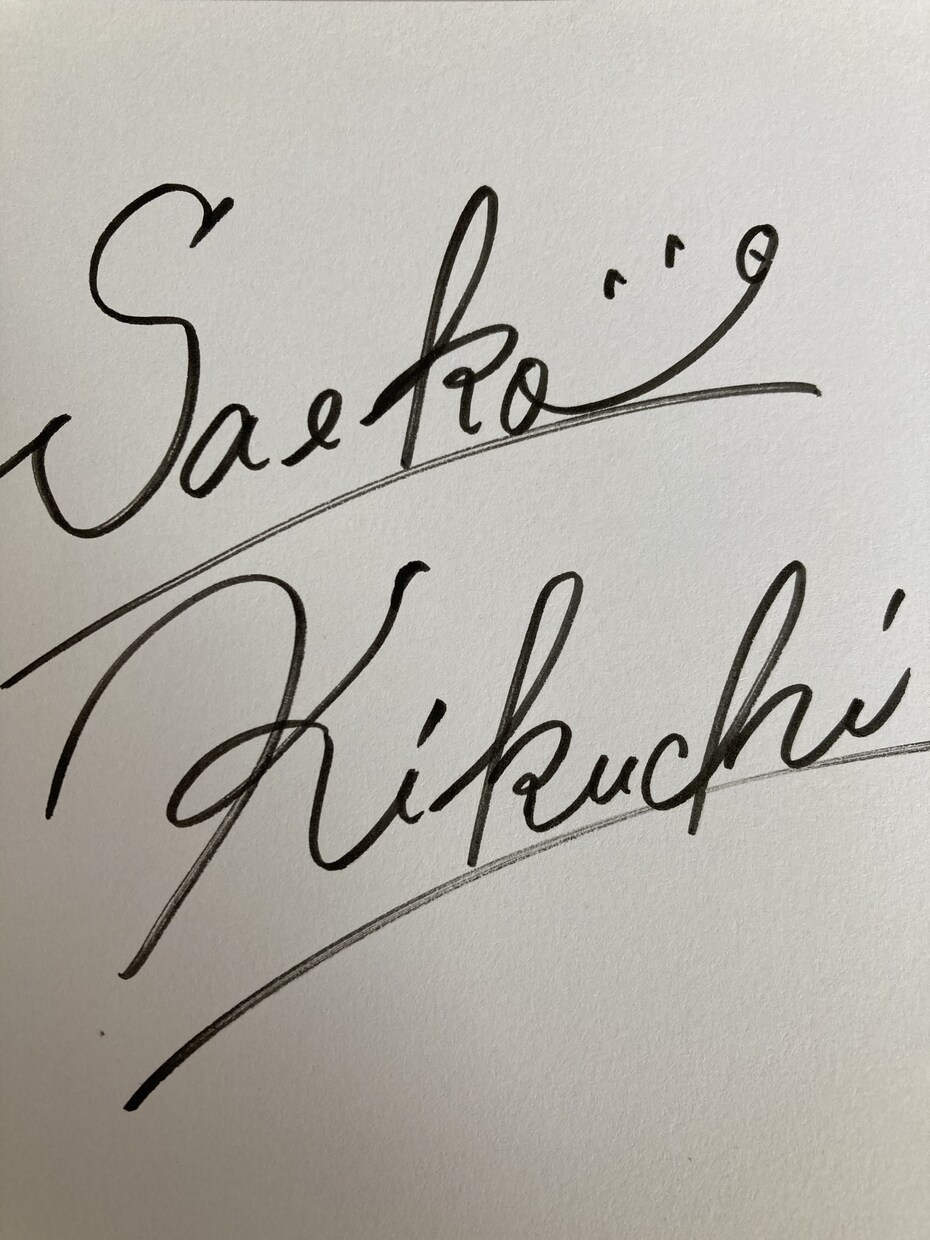 Saeko
Kikuchi